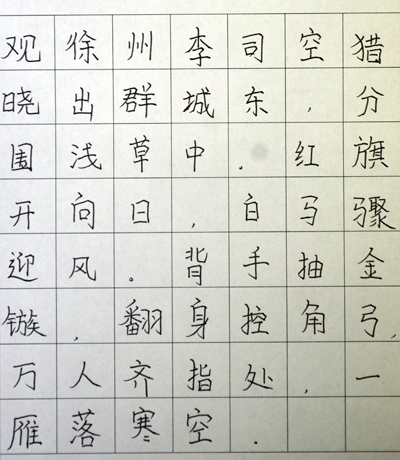 观徐州李司空猎
晓出群城东，分
围浅草中.红旗
开向日，白马骤
迎风。背手抽金
镞，翻身控角弓，
万人齐指处，一
雁落寒空.